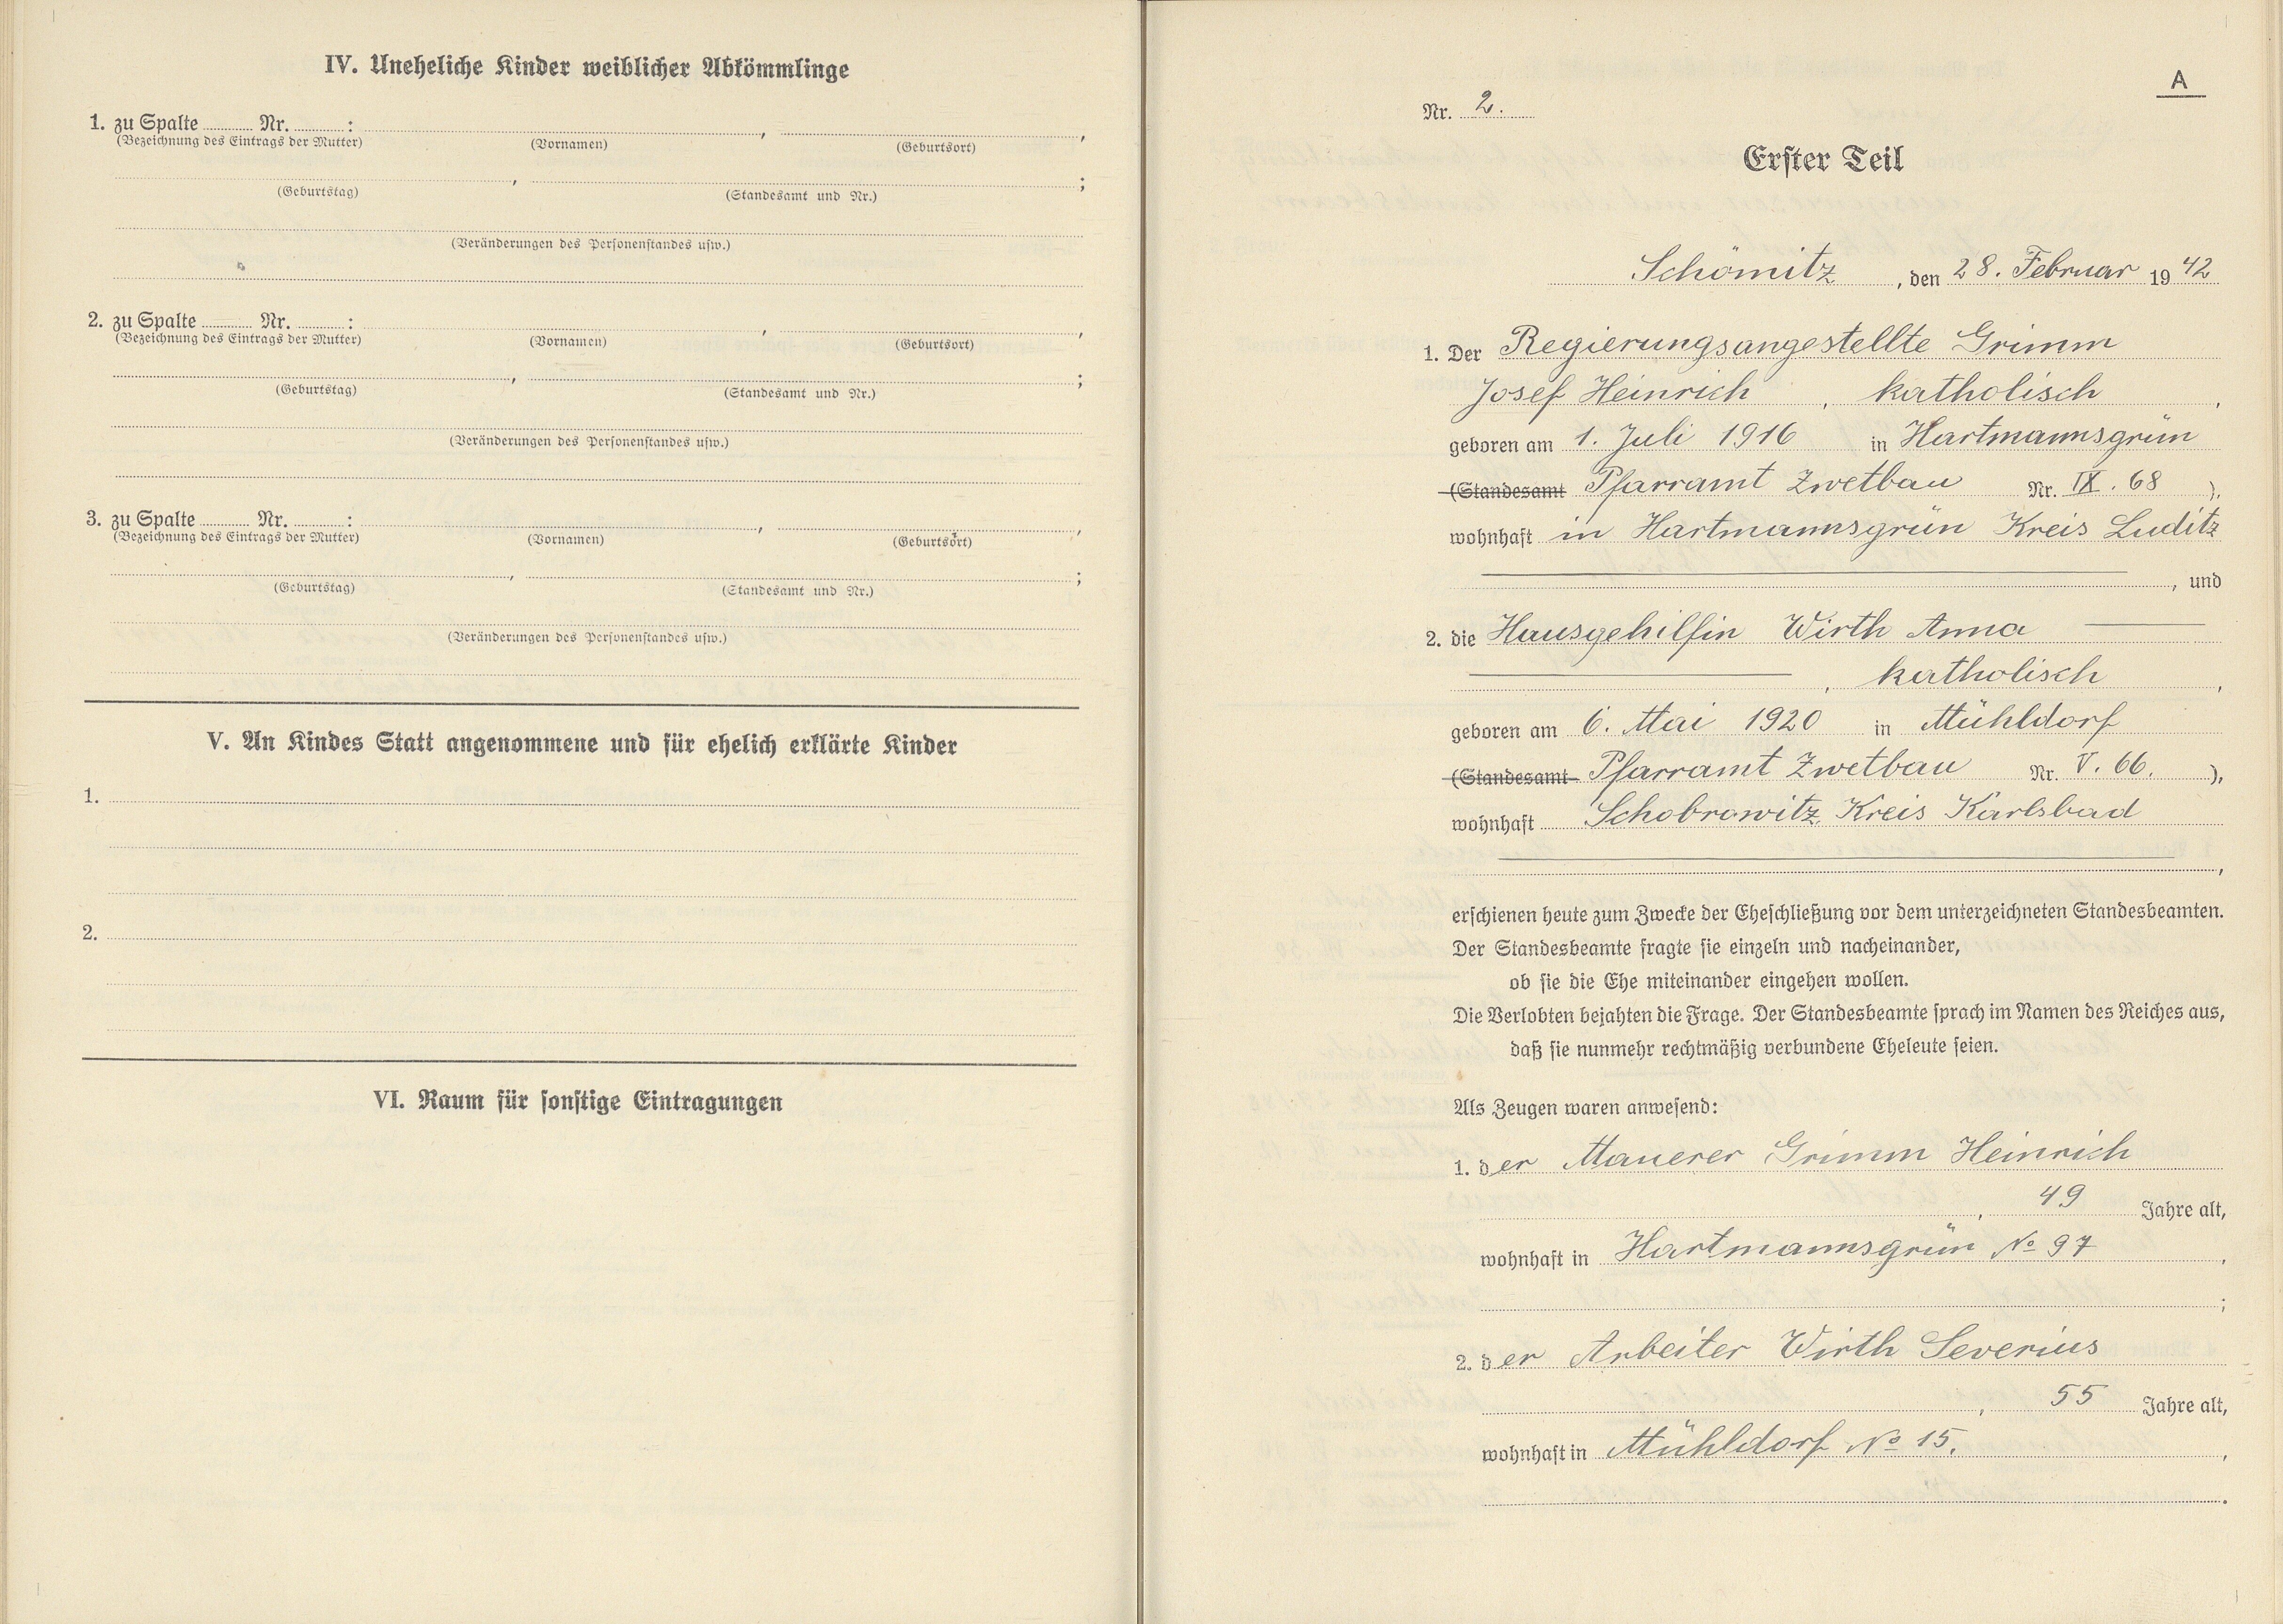 IV. Uneheliche Kinder weiblicher Abkömmlinge
1. zu Spalte ........ Nr. ........ : ........ , ........ ,
(Bezeichnung des Eintrags der Mutter) (Vornamen) (Geburtsort)
........ , ........ ;
(Geburtstag) (Standesamt und Nr.)
(Veränderungen des Personenstandes usw.)
2. zu Spalte ........ Nr. ........ : ........ , ........ ,
(Bezeichnung des Eintrags der Mutter) (Vornamen) (Geburtsort)
........ , ........ ;
(Geburtstag) (Standesamt und Nr.)
(Veränderungen des Personenstandes usw.)
3. zu Spalte ........ Nr. ........ : ........ , ........ ,
(Bezeichnung des Eintrags der Mutter) (Vornamen) (Geburtsort)
........ , ........ ;
(Geburtstag) (Standesamt und Nr.)
(Veränderungen des Personenstandes usw.)
V. An Kindes Statt angenommene und für ehelich erklärte Kinder
1.
2.
VI. Raum für sonstige Eintragungen
A
Nr. 2.
Erster Teil
Schömitz, den 28. Februar 1942
1. Der Regierungsangestellte Grimm
Josef Heinrich, katholisch,
geboren am 1. Juli 1916 in Hartmannsgrün
(Standesamt Pfarramt Zwetbau Nr. IX. 68),
wohnhaft in Hartmannsgrün Kreis Luditz
, und
2. die Hausgehilfin Wirth Anna
, katholisch,
geboren am 6. Mai 1920 in Mühldorf
(Standesamt Pfarramt Zwetbau Nr. V. 66.),
wohnhaft Schobrowitz Kreis Karlsbad
,
erschienen heute zum Zwecke der Eheschließung vor dem unterzeichneten Standesbeamten.
Der Standesbeamte fragte sie einzeln und nacheinander,
ob sie die Ehe miteinander eingehen wollen.
Die Verlobten bejahten die Frage. Der Standesbeamte sprach im Namen des Reiches aus,
daß sie nunmehr rechtmäßig verbundene Eheleute seien.
Als Zeugen waren anwesend:
1. der Mauerer Grimm Heinrich
, 49 Jahre alt,
wohnhaft in Hartmannsgrün No 97,
;
2. der Arbeiter Wirth Severius
, 55 Jahre alt,
wohnhaft in Mühldorf No 15.,
.